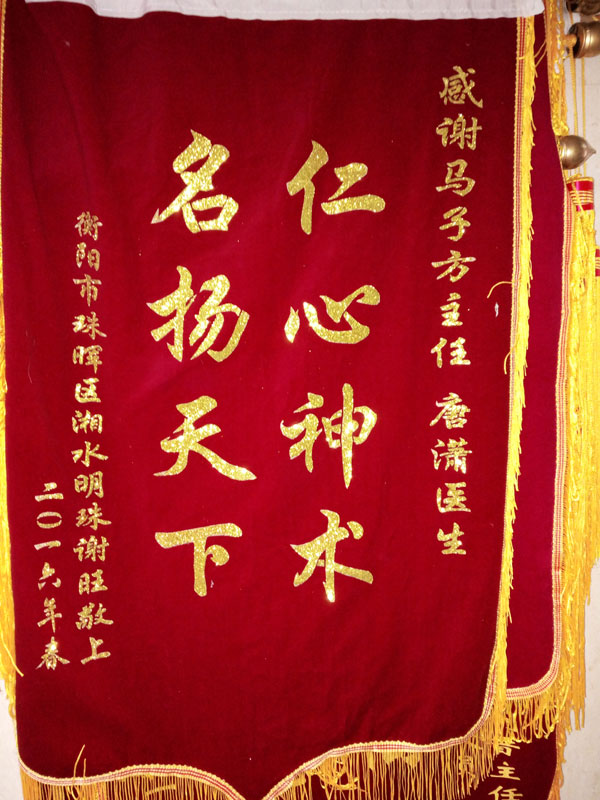 感谢马子方主任 唐潇医生
仁心神术
名扬天下
衡阳市珠晖区湘水明珠谢旺敬上
二〇一六年春
主任